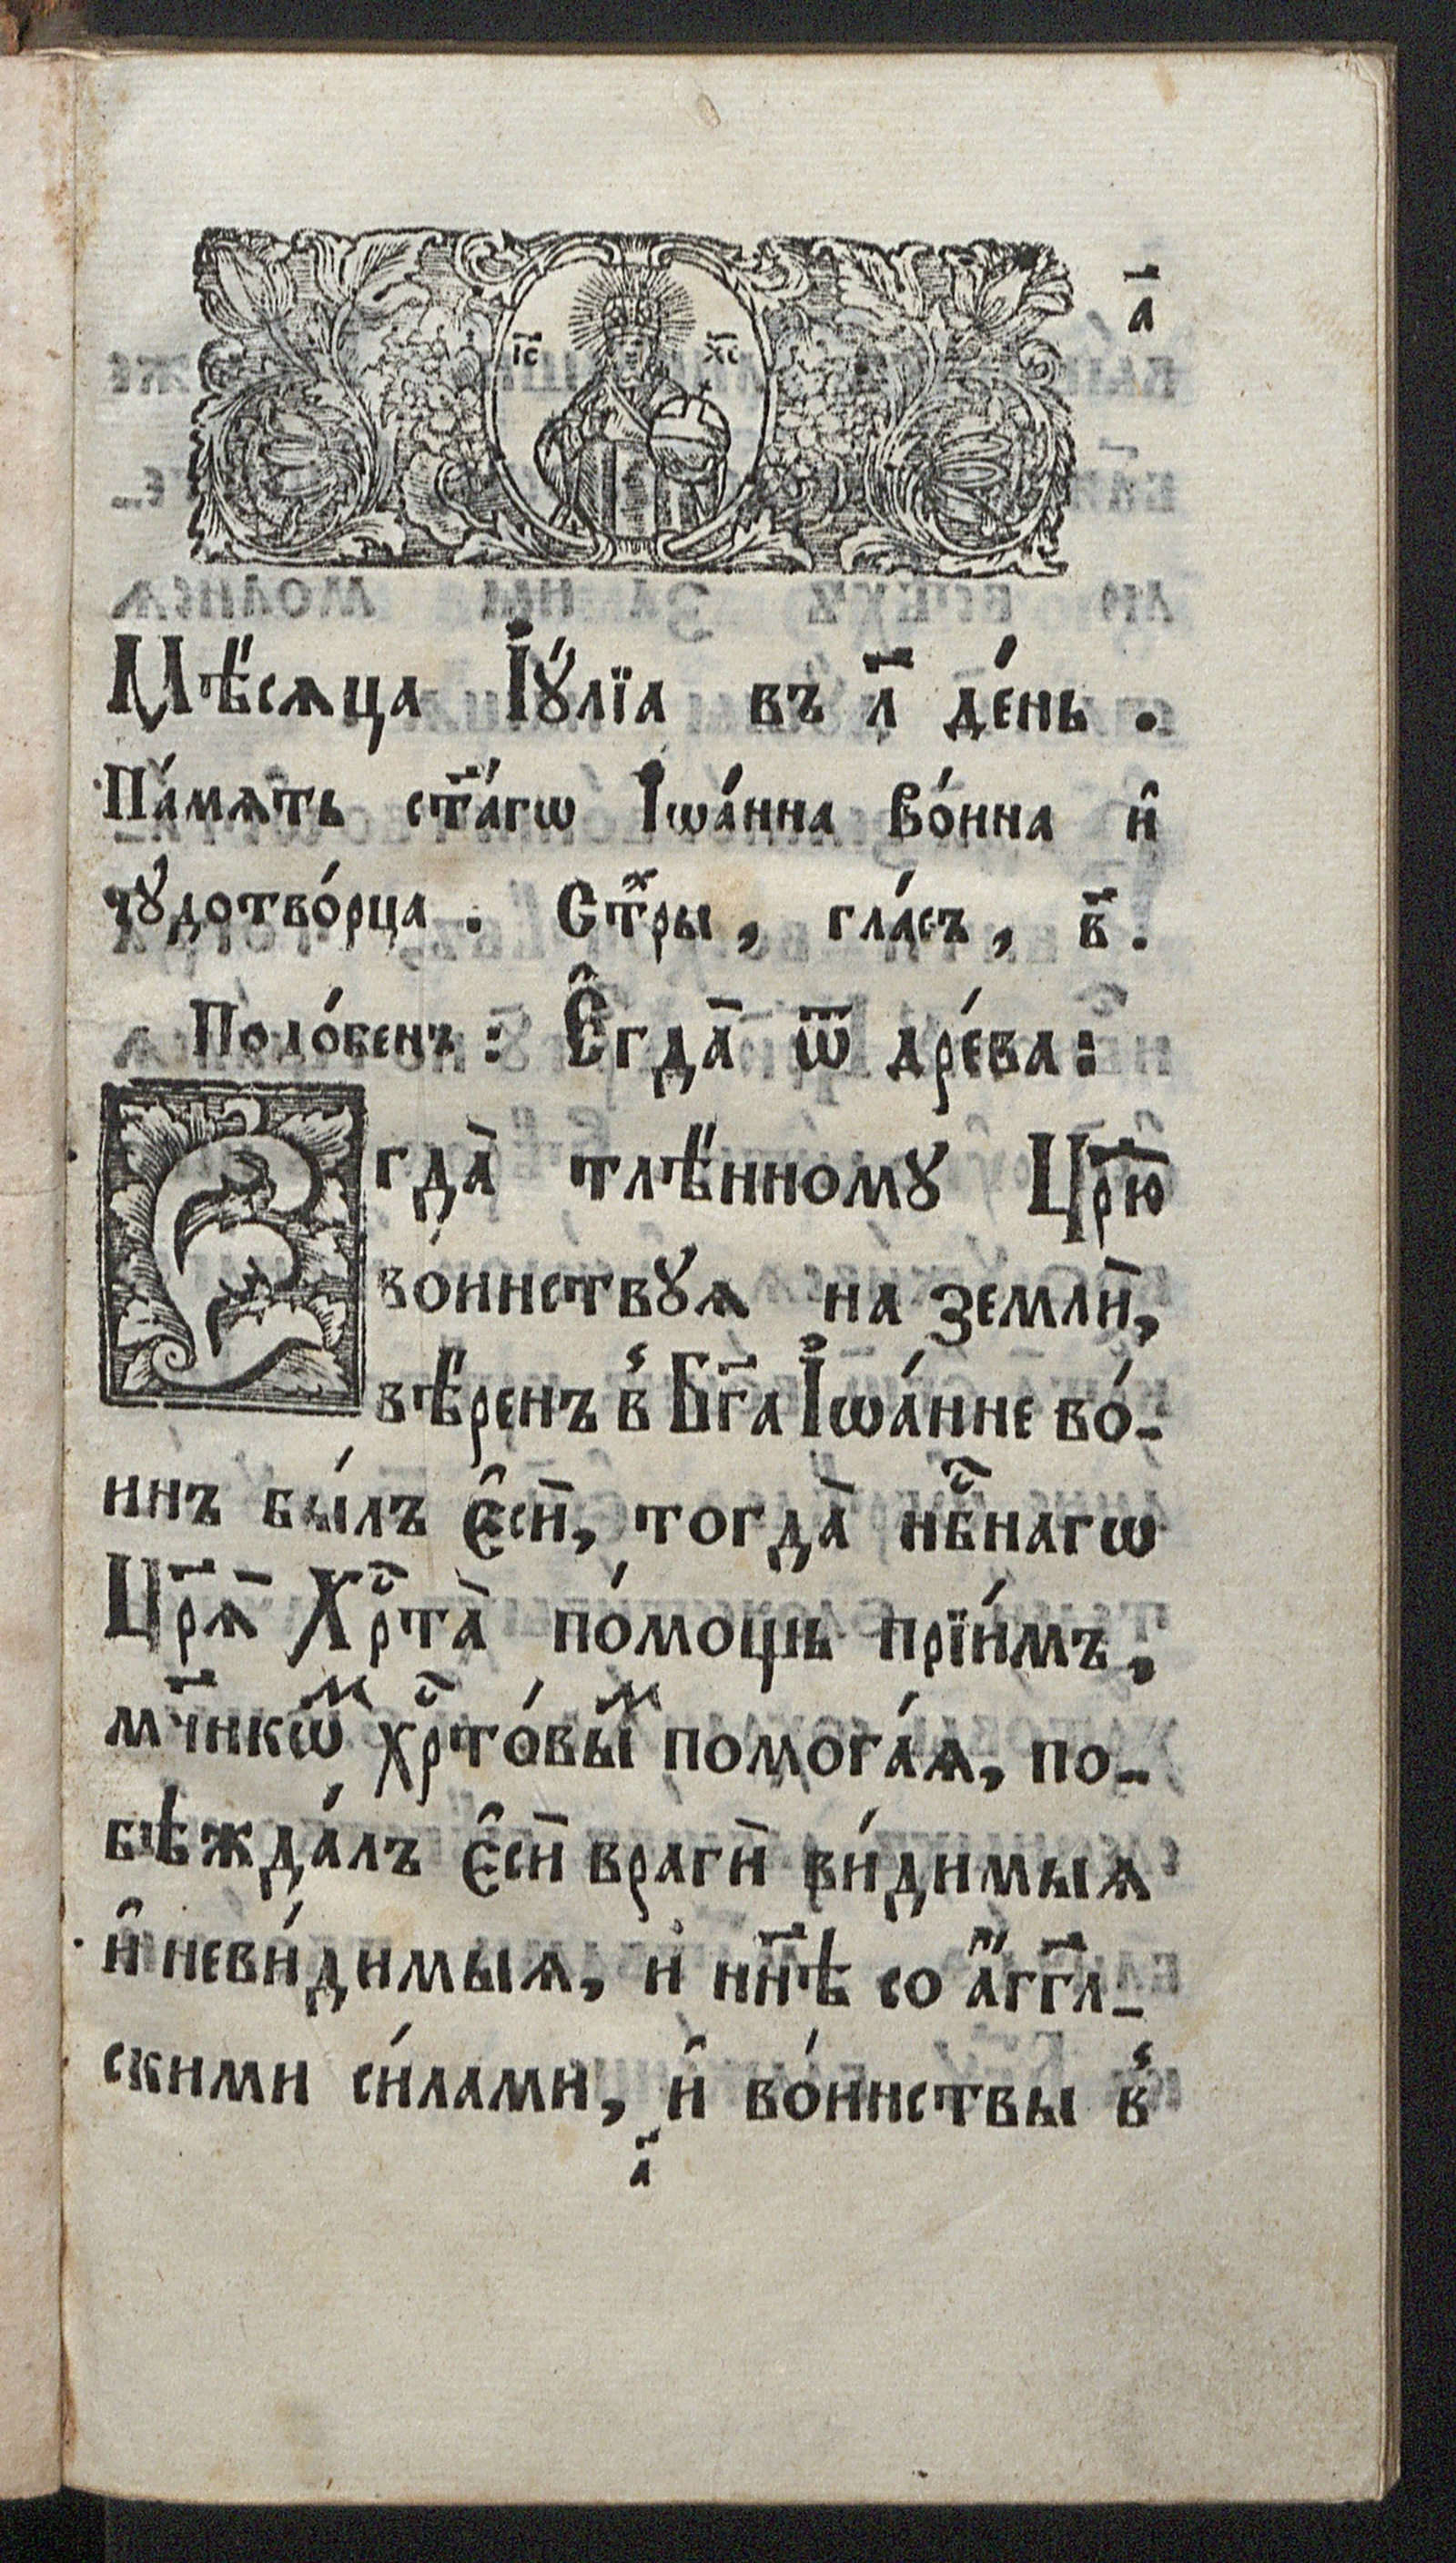 а҃
І҃С Х҃С
Мѣ́сяца Іꙋ́лїа въ л҃ де́нь .
Па́мѧть ст҃а́гѡ Іѡа́нна Во́ина и҆
чꙋдотво́рца . Стⷯры , гла́съ , в҃ .
Подо́бенъ : Є҆гда̀ ѿ дре́ва :
Егда̀ тлѣ́нномꙋ Цр҃ю̀
во́инствꙋѧ на землѝ,
вѣ́ренъ в̾ Бг҃а Іѡа́нне во́-
инъ бы́лъ є҆сѝ, тогда̀ нбⷭ҇нагѡ
Цр҃ѧ̀ Хрⷭ҇та̀ по́мощь прїи́мъ,
мч҃нкѡⷨ хрⷭ҇то́выⷨ помога́ѧ, по-
бѣжда́лъ є҆сѝ врагѝ ви́димыѧ
и҆ неви́димыѧ, и҆ нн҃ѣ со а҆́гг҃л-
скими си́лами, и҆ во́инствы в̾
а҃